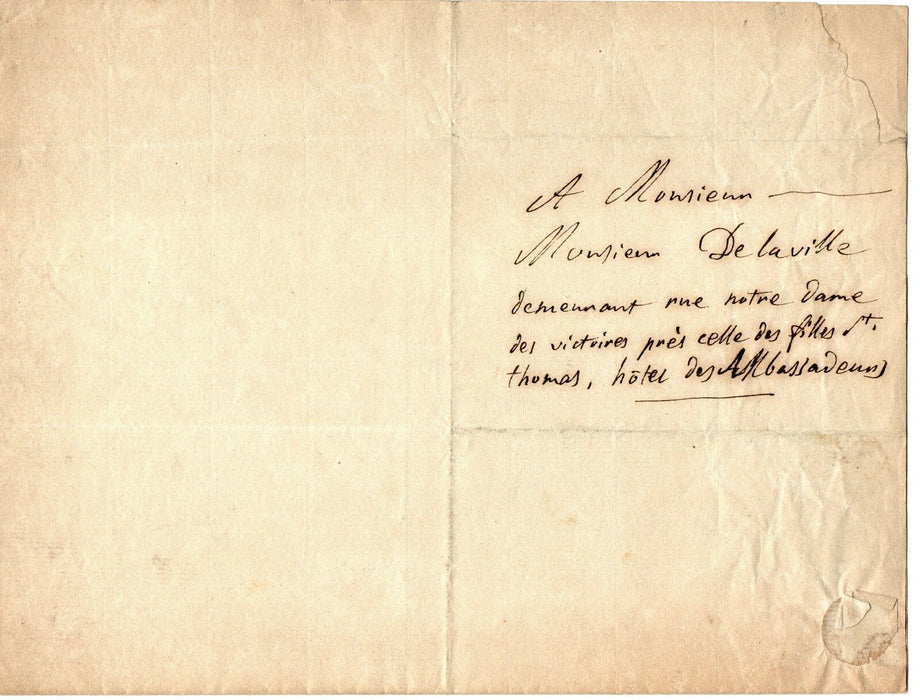 A Monsieur
Monsieur Delaville
demeurant rue notre dame
des victoires près celle des filles St.
thomas, hôtel des AMbassadeurs